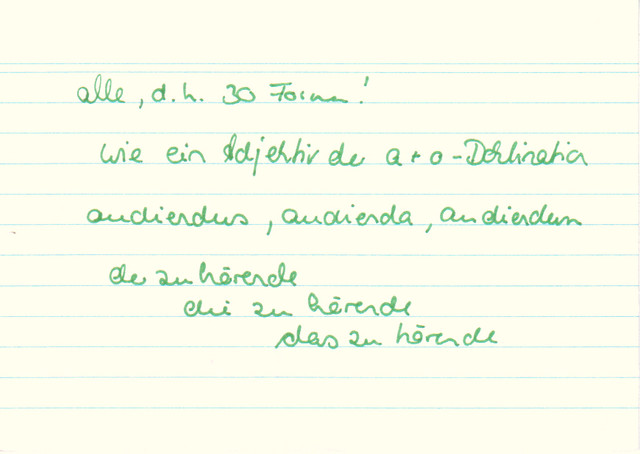 alle, d.h. 30 Formen!
wie ein Adjektiv der a + o - Deklination
audiendus, audienda, audiendum
der zu hörende
die zu hörende
das zu hörende